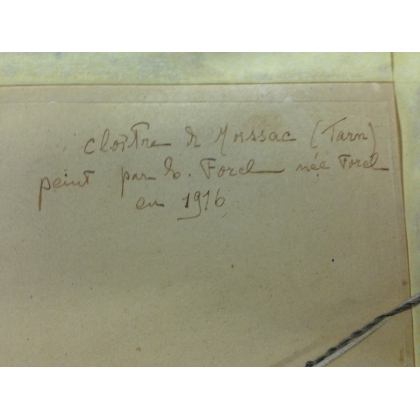 cloître de Moissac (Tarn)
peint par E. Forel née Forel
en 1916